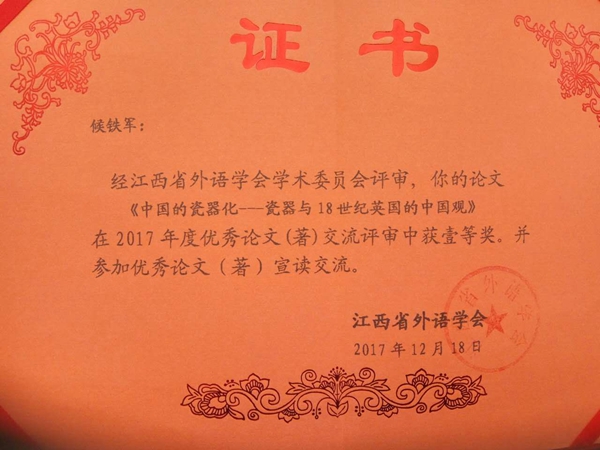 证书
候铁军：
经江西省外语学会学术委员会评审，你的论文
《中国的瓷器化---瓷器与18世纪英国的中国观》
在2017年度优秀论文(著)交流评审中获壹等奖。并
参加优秀论文（著）宣读交流。
江西省外语学会
2017年12月18日
省外语学会